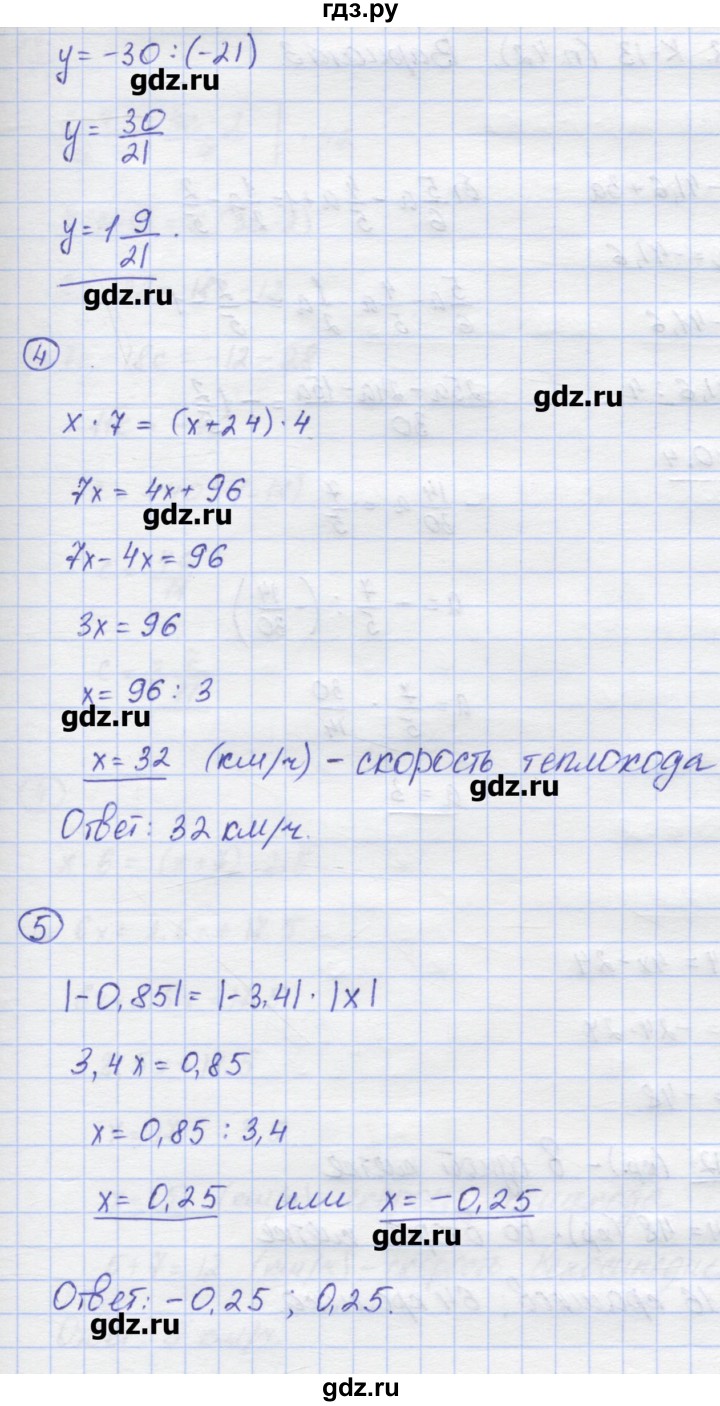 гдз.ру
y = -30 : (-21)
gdz.ru
y = 30/21
y = 1 9/21.
gdz.ru
4
gdz.ru
x · 7 = (x+24) · 4
7x = 4x + 96
gdz.ru
7x - 4x = 96
3x = 96
x = 96 : 3
gdz.ru
x = 32 (км/ч) - скорость теплохода
gdz.ru
Ответ: 32 км/ч.
5
|-0,85| = |-3,4| · |x|
3,4x = 0,85
x = 0,85 : 3,4
x = 0,25 или x = -0,25
gdz.ru
Ответ: -0,25 ; 0,25.
gdz.ru
gdz.ru